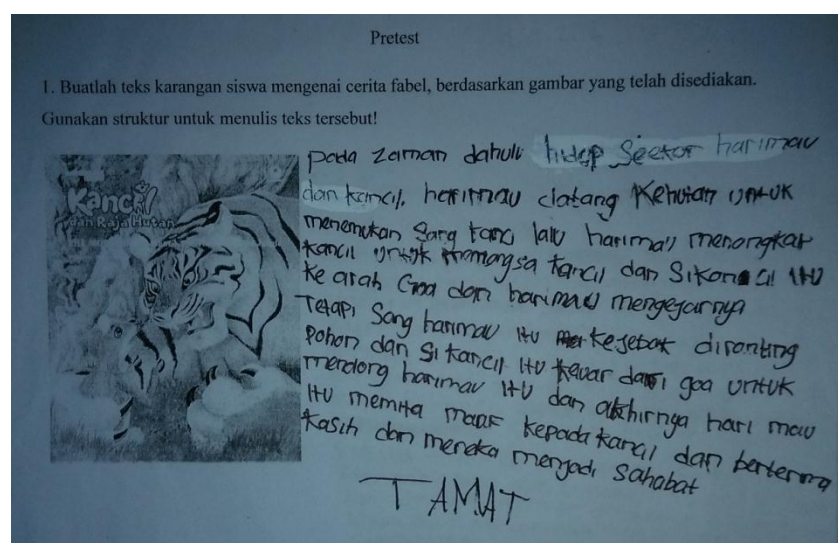 Pretest
1. Buatlah teks karangan siswa mengenai cerita fabel, berdasarkan gambar yang telah disediakan.
Gunakan struktur untuk menulis teks tersebut!
Kancil
dan Raja Hutan
pada zaman dahulu hidup Seekor harimau
dan kancil, harimau datang Kehutan untuk
menemukan Sang kancil lalu harimau
kancil untuk memangsa kancil dan Sikancil itu
ke arah Goa dan harimau mengejarnya
Tetapi Sang harimau itu kejebak diranting
Pohon dan Si kancil itu dari goa untuk
mendorg harimau itu dan akhirnya hari mau
itu memita maaf kepada kancil dan berterima
kasih dan mereka menjadi sahabat
TAMAT